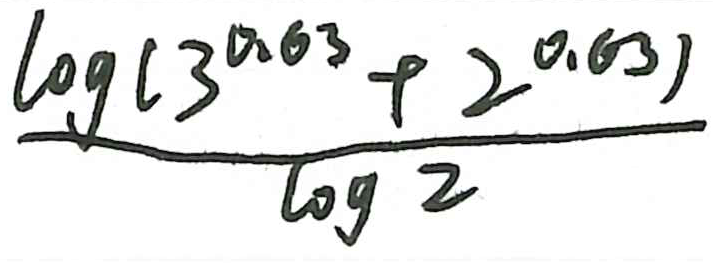 log(3^0.63 + 2^0.63)
log 2